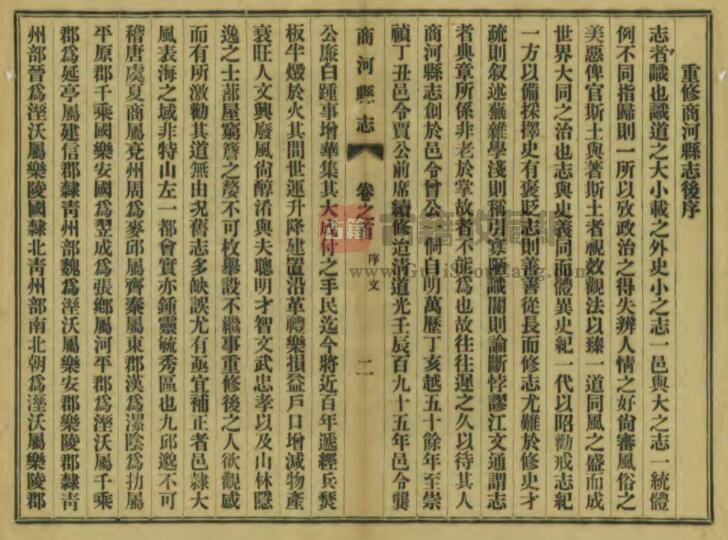 重修商河縣志後序
志者識也識道之大小載之外史小之志一邑與大之志一統體
例不同指歸則一所以攷政治之得失辨人情之好尙審風俗之
美惡俾官斯土與著斯土者視效觀法以臻一道同風之盛而成
世界大同之治也志與史義同而體異史紀一代以昭勸戒志紀
一方以備採擇史有褒貶志則善善從長而修志尤難於修史才
疏則叙述蕪雜學淺則稱引寠陋識闇則論斷悖謬江文通謂志
者典章所係非老於掌故者不能爲也故往往遲之久以待其人
商河縣志創於邑令曾公一侗自明萬歷丁亥越五十餘年至崇
禎丁丑邑令賈公前席續修迨淸道光壬辰百九十五年邑令龔
商河縣志 卷之首 序文 二
公廉白踵事增華集其大成付之手民迄今將近百年遞經兵燹
板半燬於火其間世運升降建置沿革禮樂損益戶口增減物產
衰旺人文興廢風尙醇淆與夫聰明才智文武忠孝以及山林隱
逸之士蔀屋窮簷之嫠不可枚舉設不繼事重修後之人欲觀感
而有所激勸其道無由况舊志多缺誤尤有亟宜補正者邑隸大
風表海之域非特山左一都會實亦鍾靈毓秀區也九邱邈不可
稽唐虞夏商屬兗州周爲麥邱屬齊秦屬東郡漢爲漯陰爲朸屬
平原郡千乘國樂安國爲翌成爲張鄕屬河平郡爲溼沃屬千乘
郡爲延亭屬建信郡隸靑州部魏爲溼沃屬樂安郡樂陵郡隸靑
州部晉爲溼沃屬樂陵國隸北靑州部南北朝爲溼沃屬樂陵郡
古籍收藏网
www.GuJiShouCang.com